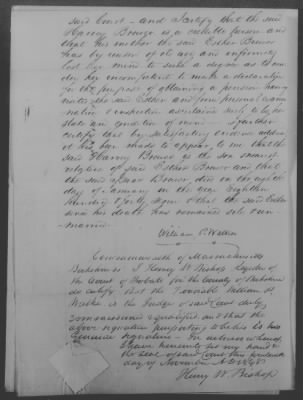 said Court - and I certify that the said
Harvey is a credible person and
that his mother the said Esther
has by reason of old age and infirmity
lost her mind to such a degree as to ren-
der her incompetent to make a declaration
for the purpose of obtaining a pension having
visited the said Esther and from personal exami-
nation & inspection ascertained such to be her
state and condition of mind - I further
certify that by satisfactory evidence adduc-
ed it has been made to appear to me that the
said Harvey is the son nearest
relative of said Esther and that
the said died on the eighth
day of January in the year Eighteen
hundred & forty and that the said Esther
since his death has remained sole & un-
married.
William P. Walker
Commonwealth of Massachusetts
Berkshire ss I Henry W. Bishop Register of
the Court of Probate for the County of Berkshire
do certify that the Honorable William P.
Walker is the Judge of said Court duly
commissioned & qualified and that the
above signature purporting to be his is his
genuine signature - In witness whereof
I have hereunto set my hand &
the seal of said Court this
day of November A.D. 184
Henry W. Bishop